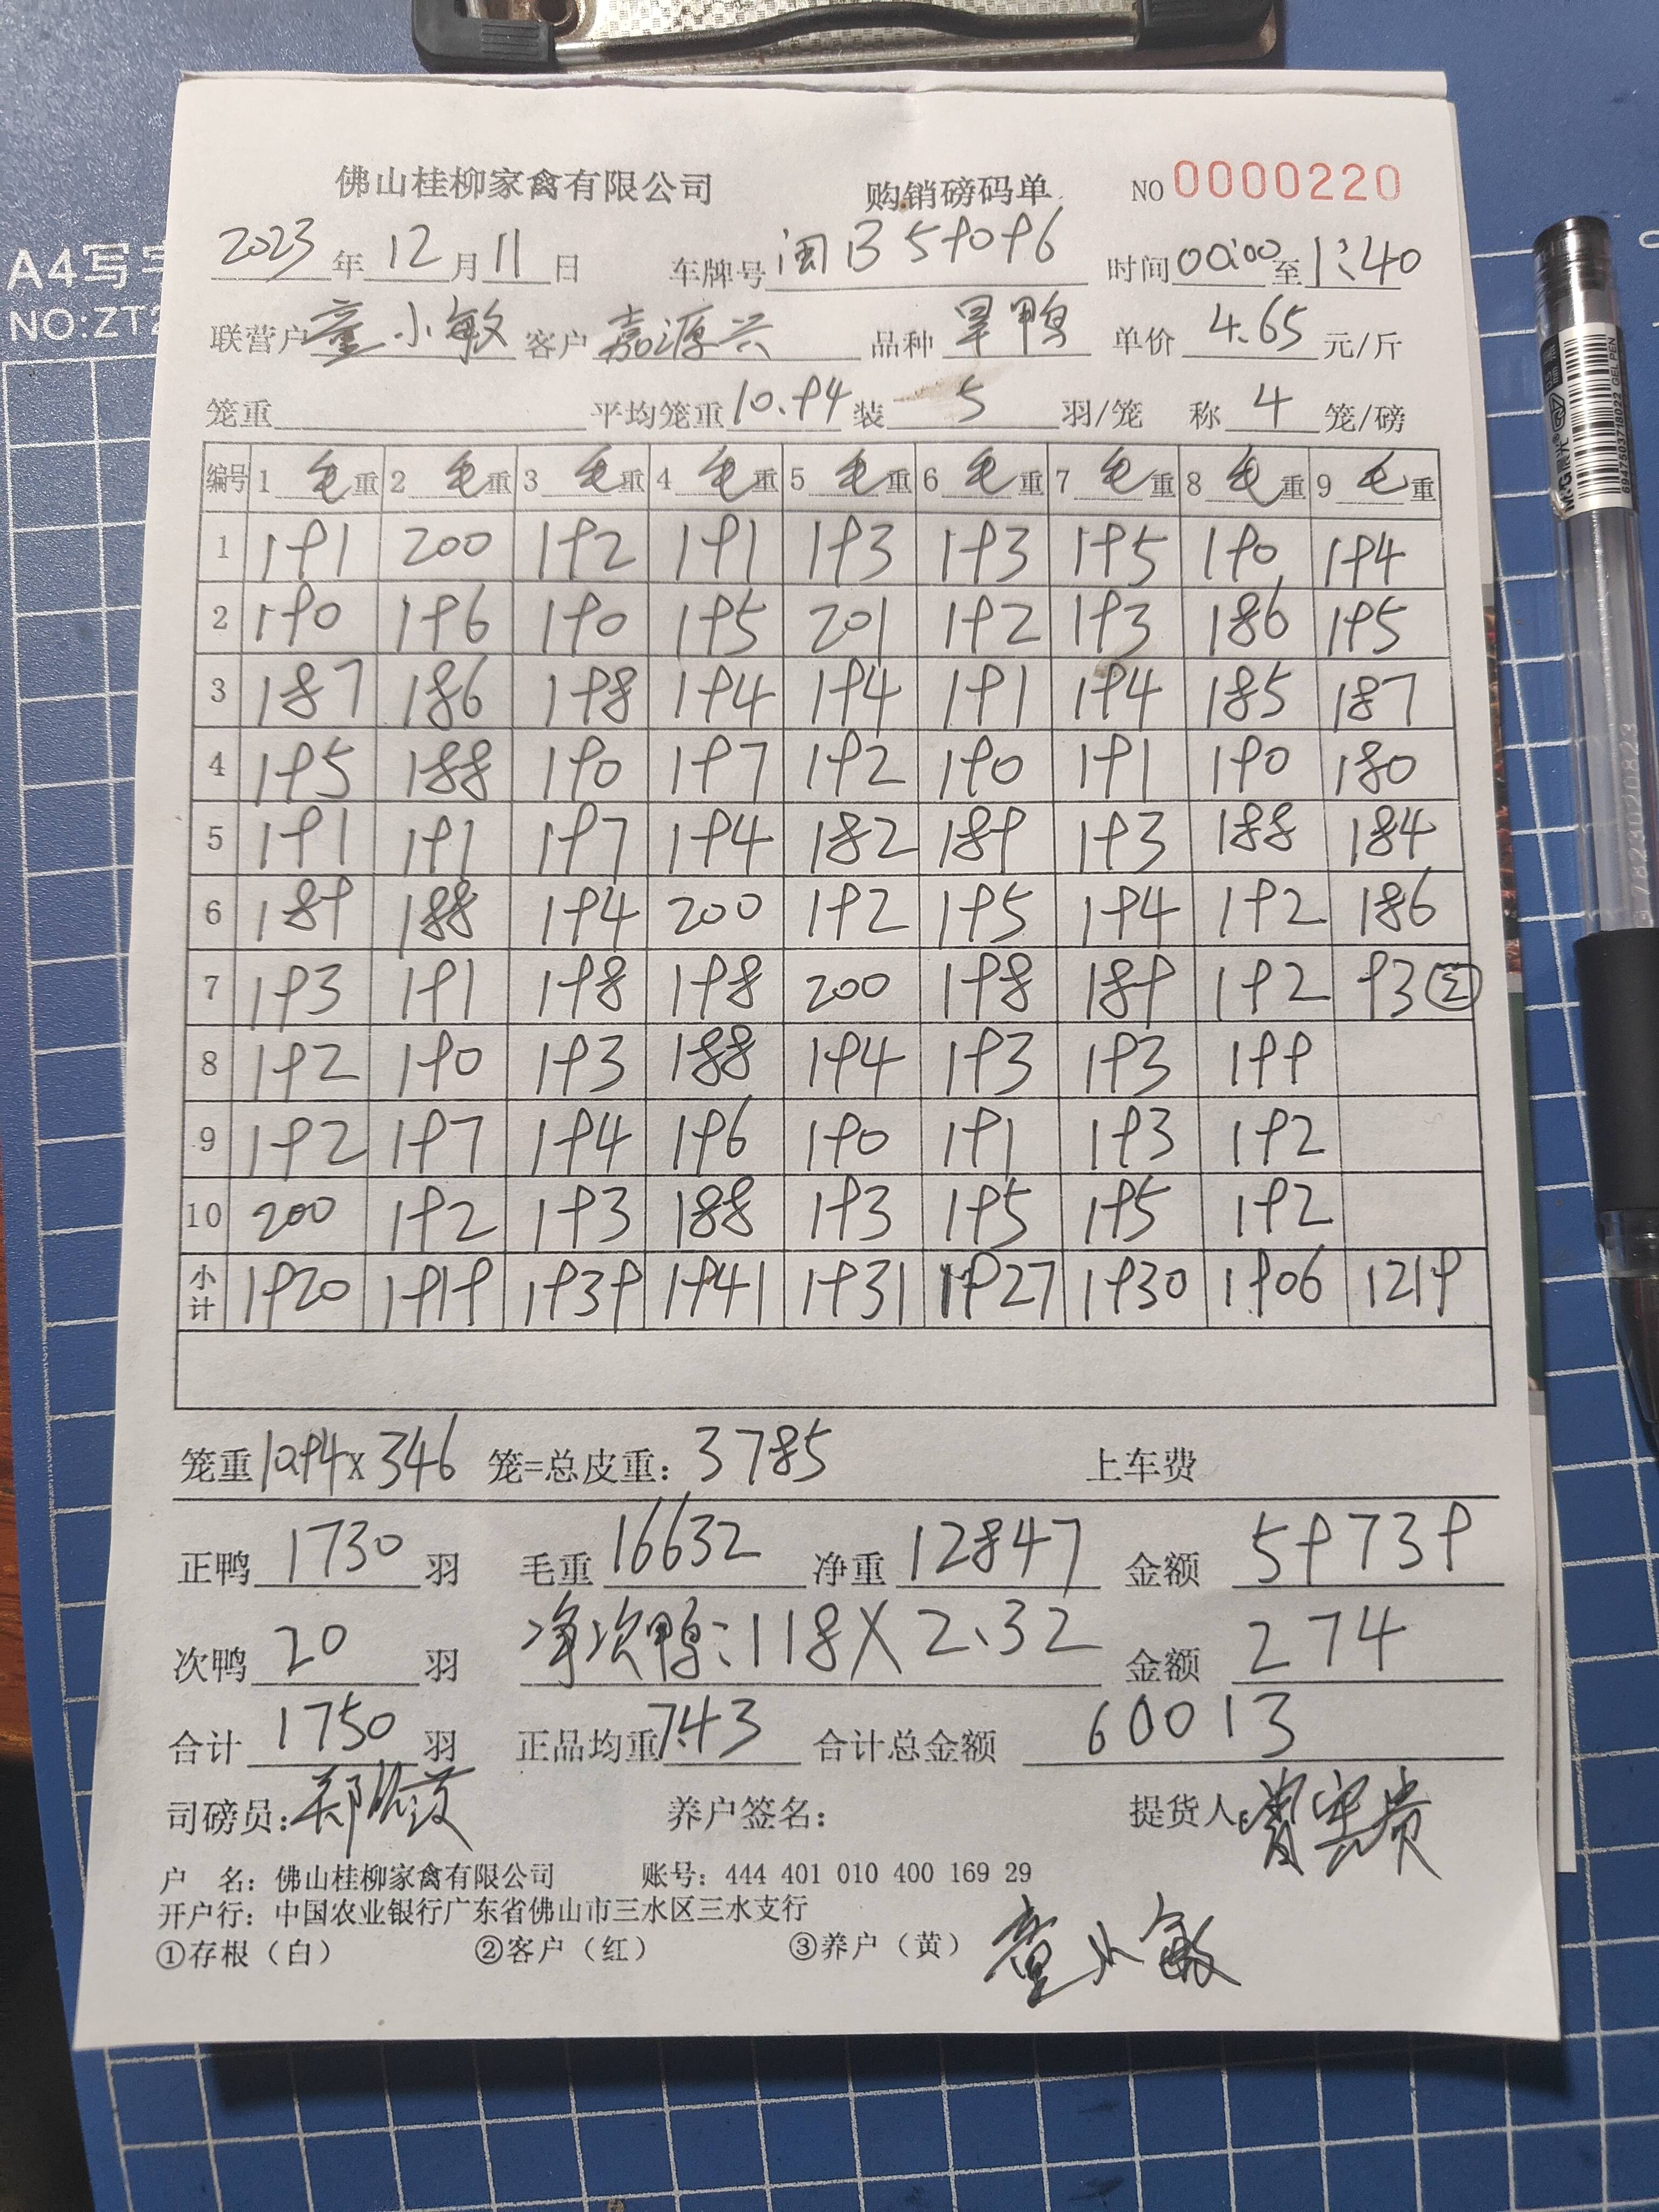 佛山桂柳家禽有限公司 购销磅码单 NO 0000220
2023年12月11日 车牌号 闽B59096 时间 00:00 至 1:40
联营户 童小敏 客户 嘉源兴 品种 旱鸭 单价 4.65 元/斤
笼重 平均笼重 10.94 装 5 羽/笼 称 4 笼/磅
编号 1 毛重 2 毛重 3 毛重 4 毛重 5 毛重 6 毛重 7 毛重 8 毛重 9 毛重
1 191 200 192 191 193 193 195 190 194
2 190 196 190 195 201 192 193 186 195
3 187 186 198 194 194 191 194 185 187
4 195 188 190 197 192 190 191 190 180
5 191 191 197 194 182 189 193 188 184
6 189 188 194 200 192 195 194 192 186
7 193 191 198 198 200 198 189 192 93
8 192 190 193 188 194 193 193 199
9 192 197 194 196 190 191 193 192
10 200 192 193 188 193 195 195 192
小计 1920 1919 1939 1941 1931 1927 1930 1906 1219
笼重 10.94 X 346 笼=总皮重: 3785 上车费
正鸭 1730 羽 毛重 16632 净重 12847 金额 59739
次鸭 20 羽 净次鸭:118X2.32 金额 274
合计 1750 羽 正品均重 7.43 合计总金额 60013
司磅员: 养户签名: 提货人:
户 名: 佛山桂柳家禽有限公司 账号: 444 401 010 400 169 29
开户行: 中国农业银行广东省佛山市三水区三水支行
①存根（白） ②客户（红） ③养户（黄） 童小敏
A4写字
NO:ZT2
M&G 晨光
GEL PEN
6947503718022